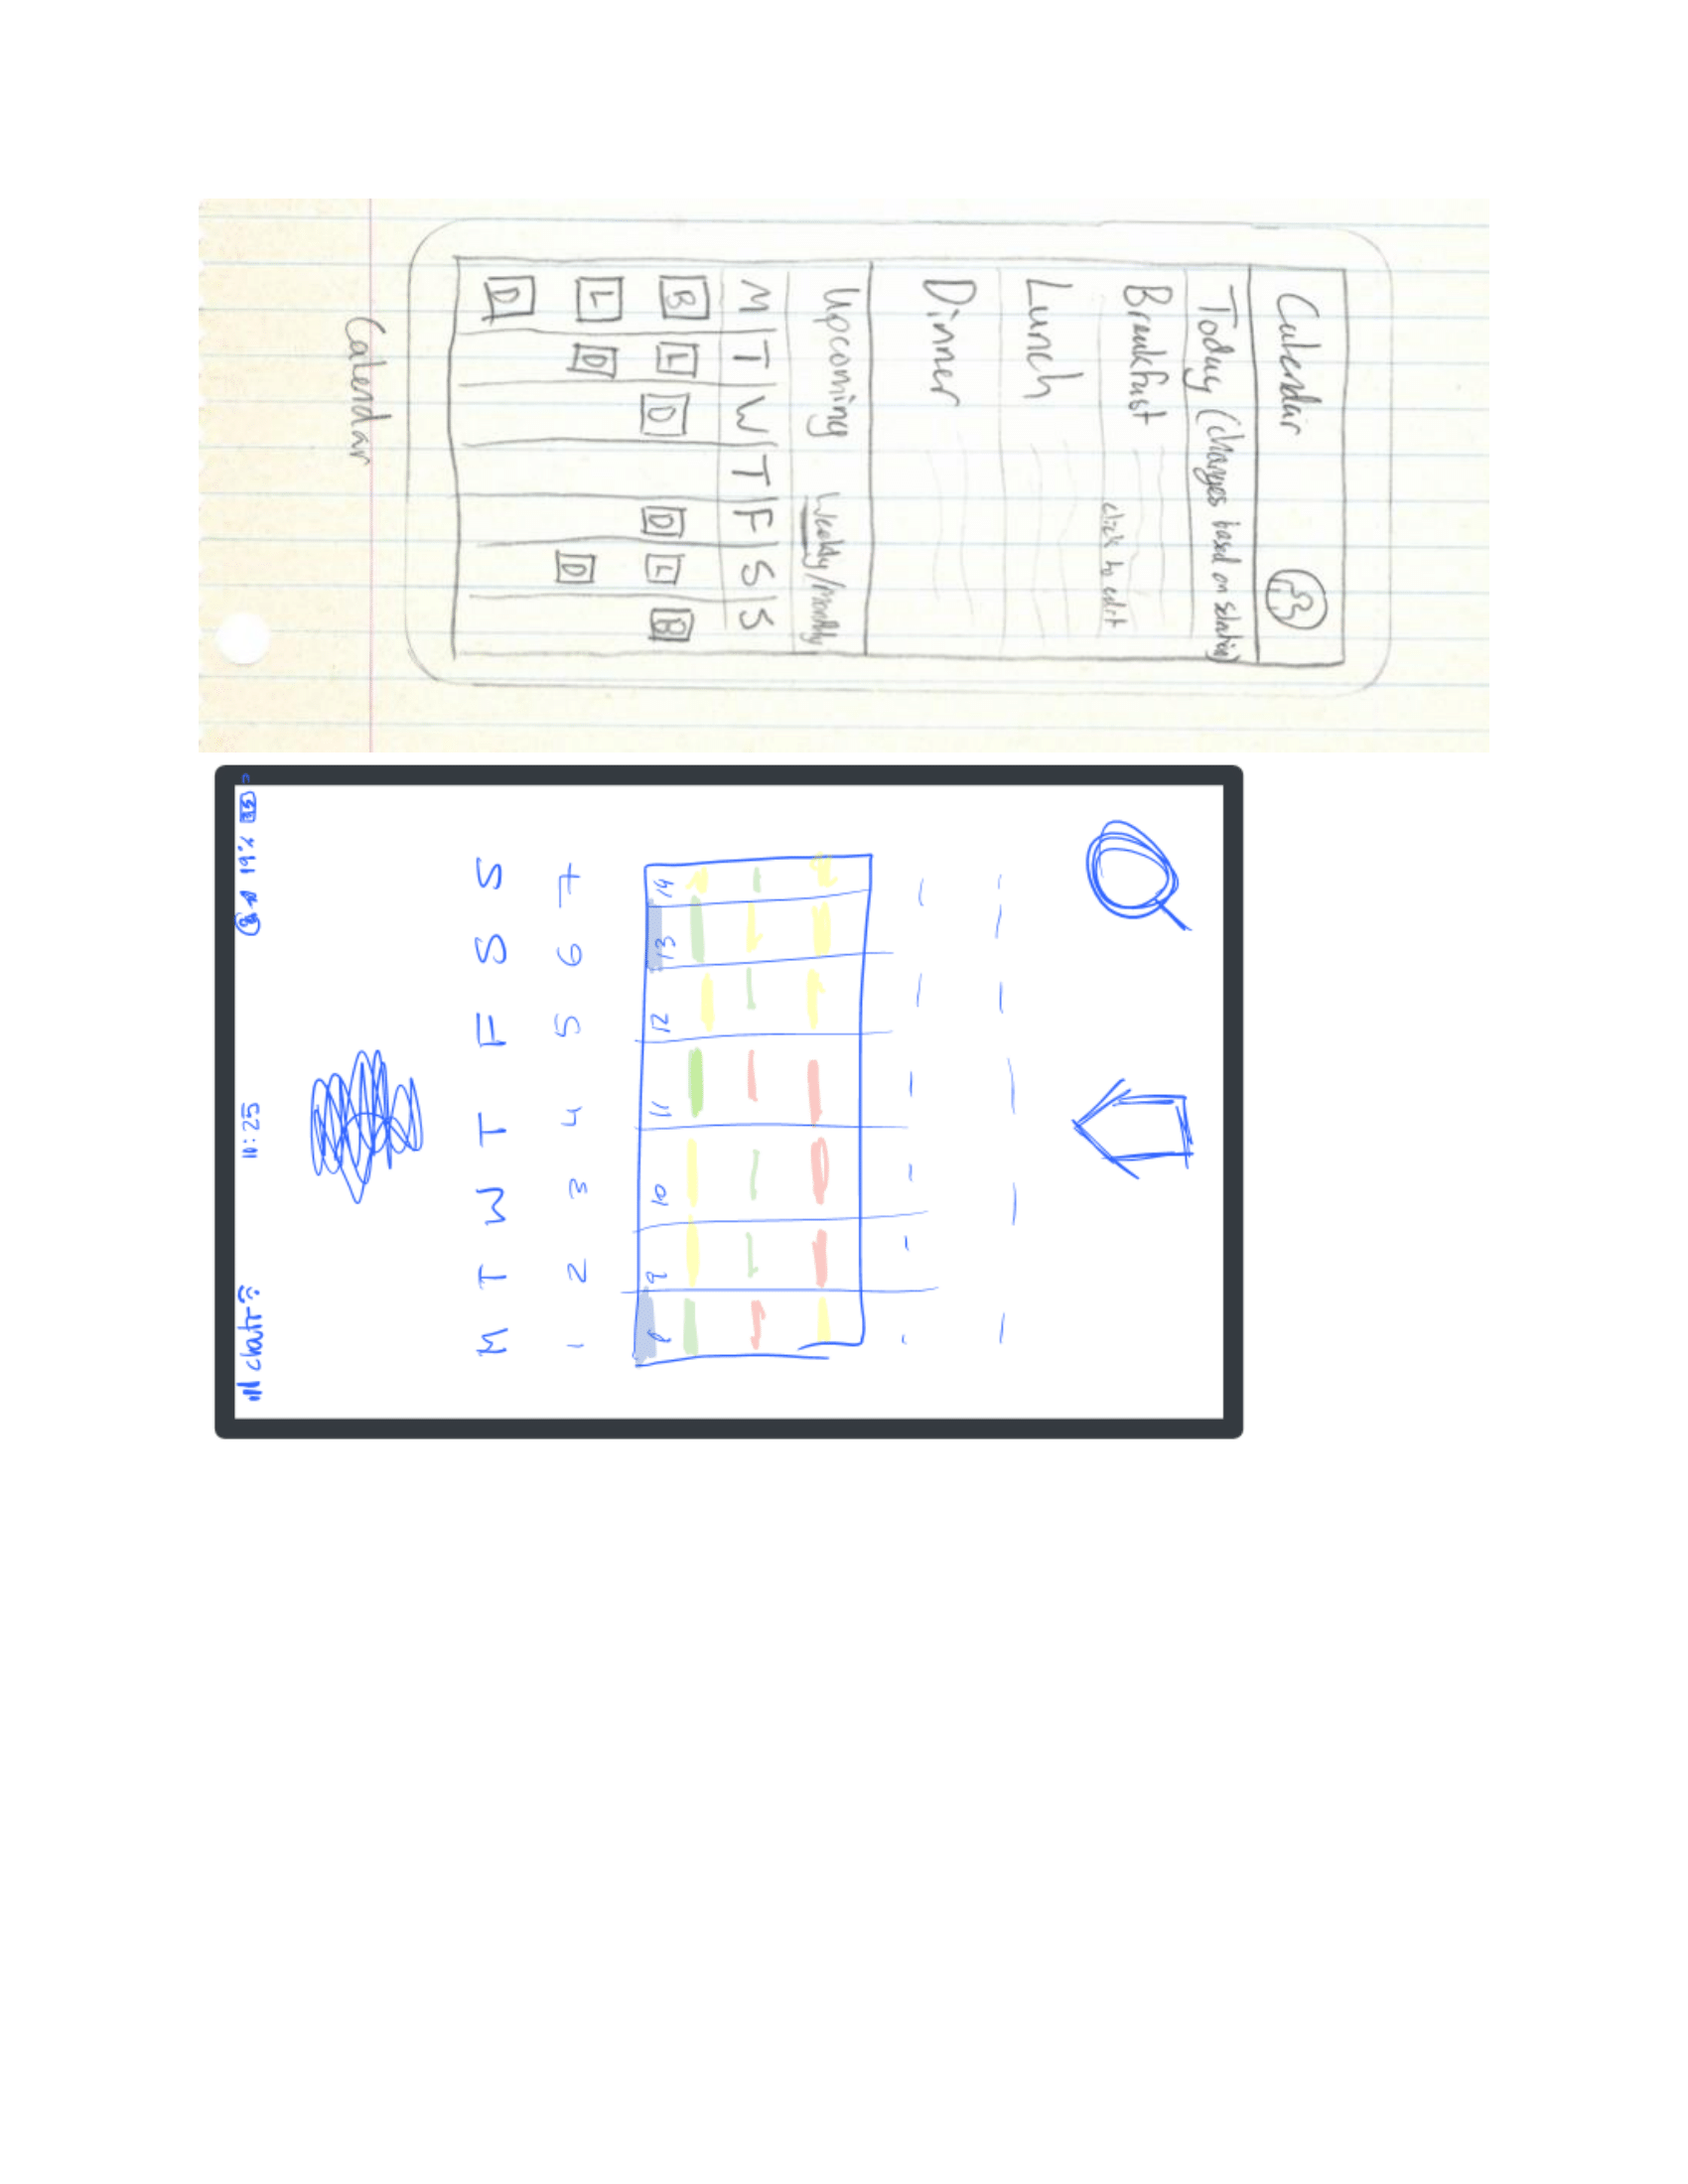 Calendar
Today (changes based on selection)
Breakfast
click to edit
Lunch
Dinner
Upcoming Weekly/Monthly
M T W T F S S
B L D D L B
L D D
D
Calendar
10:25 19%
M T W T F S S
1 2 3 4 5 6 7
8 9 10 11 12 13 14